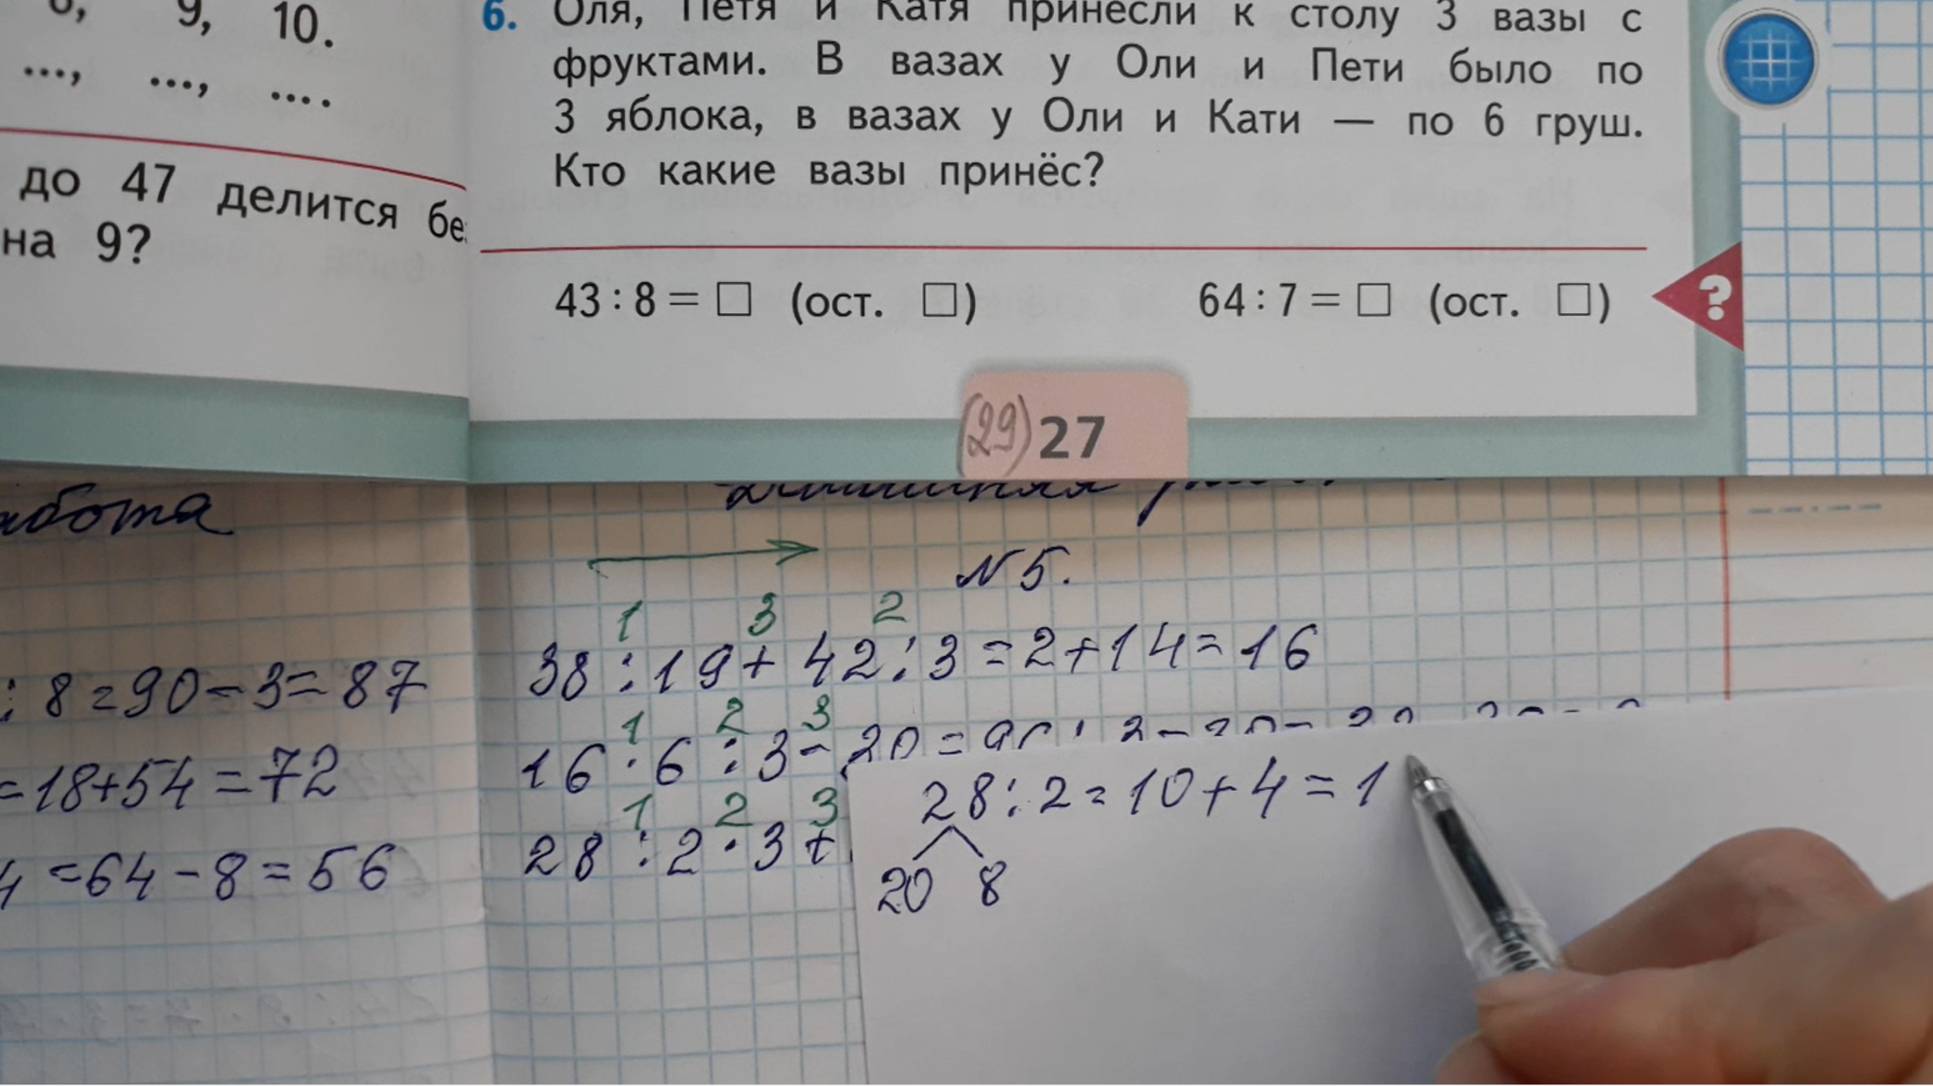 9, 10.
..., ..., ... .
до 47 делится бе
на 9?
6. Оля, Петя и Катя принесли к столу 3 вазы с
фруктами. В вазах у Оли и Пети было по
3 яблока, в вазах у Оли и Кати — по 6 груш.
Кто какие вазы принёс?
43 : 8 = □ (ост. □) 64 : 7 = □ (ост. □)
?
(29) 27
абота
: 8 = 90 - 3 = 87
= 18 + 54 = 72
4 = 64 - 8 = 56
N 5.
1 3 2
38 : 19 + 42 : 3 = 2 + 14 = 16
1 2 3
16 · 6 : 3 - 20 =
1 2 3
28 : 2 · 3 +
28 : 2 = 10 + 4 = 1
20 8